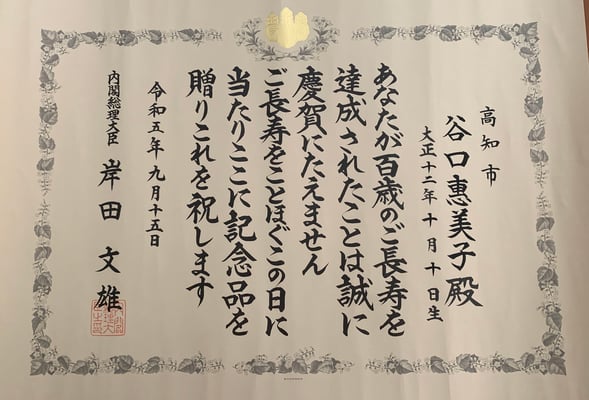 高知市
谷口惠美子殿
大正十二年十月十日生
あなたが百歳のご長寿を
達成されたことは誠に
慶賀にたえません
ご長寿をことほぐこの日に
当たりここに記念品を
贈りこれを祝します
令和五年九月十五日
内閣総理大臣 岸田文雄